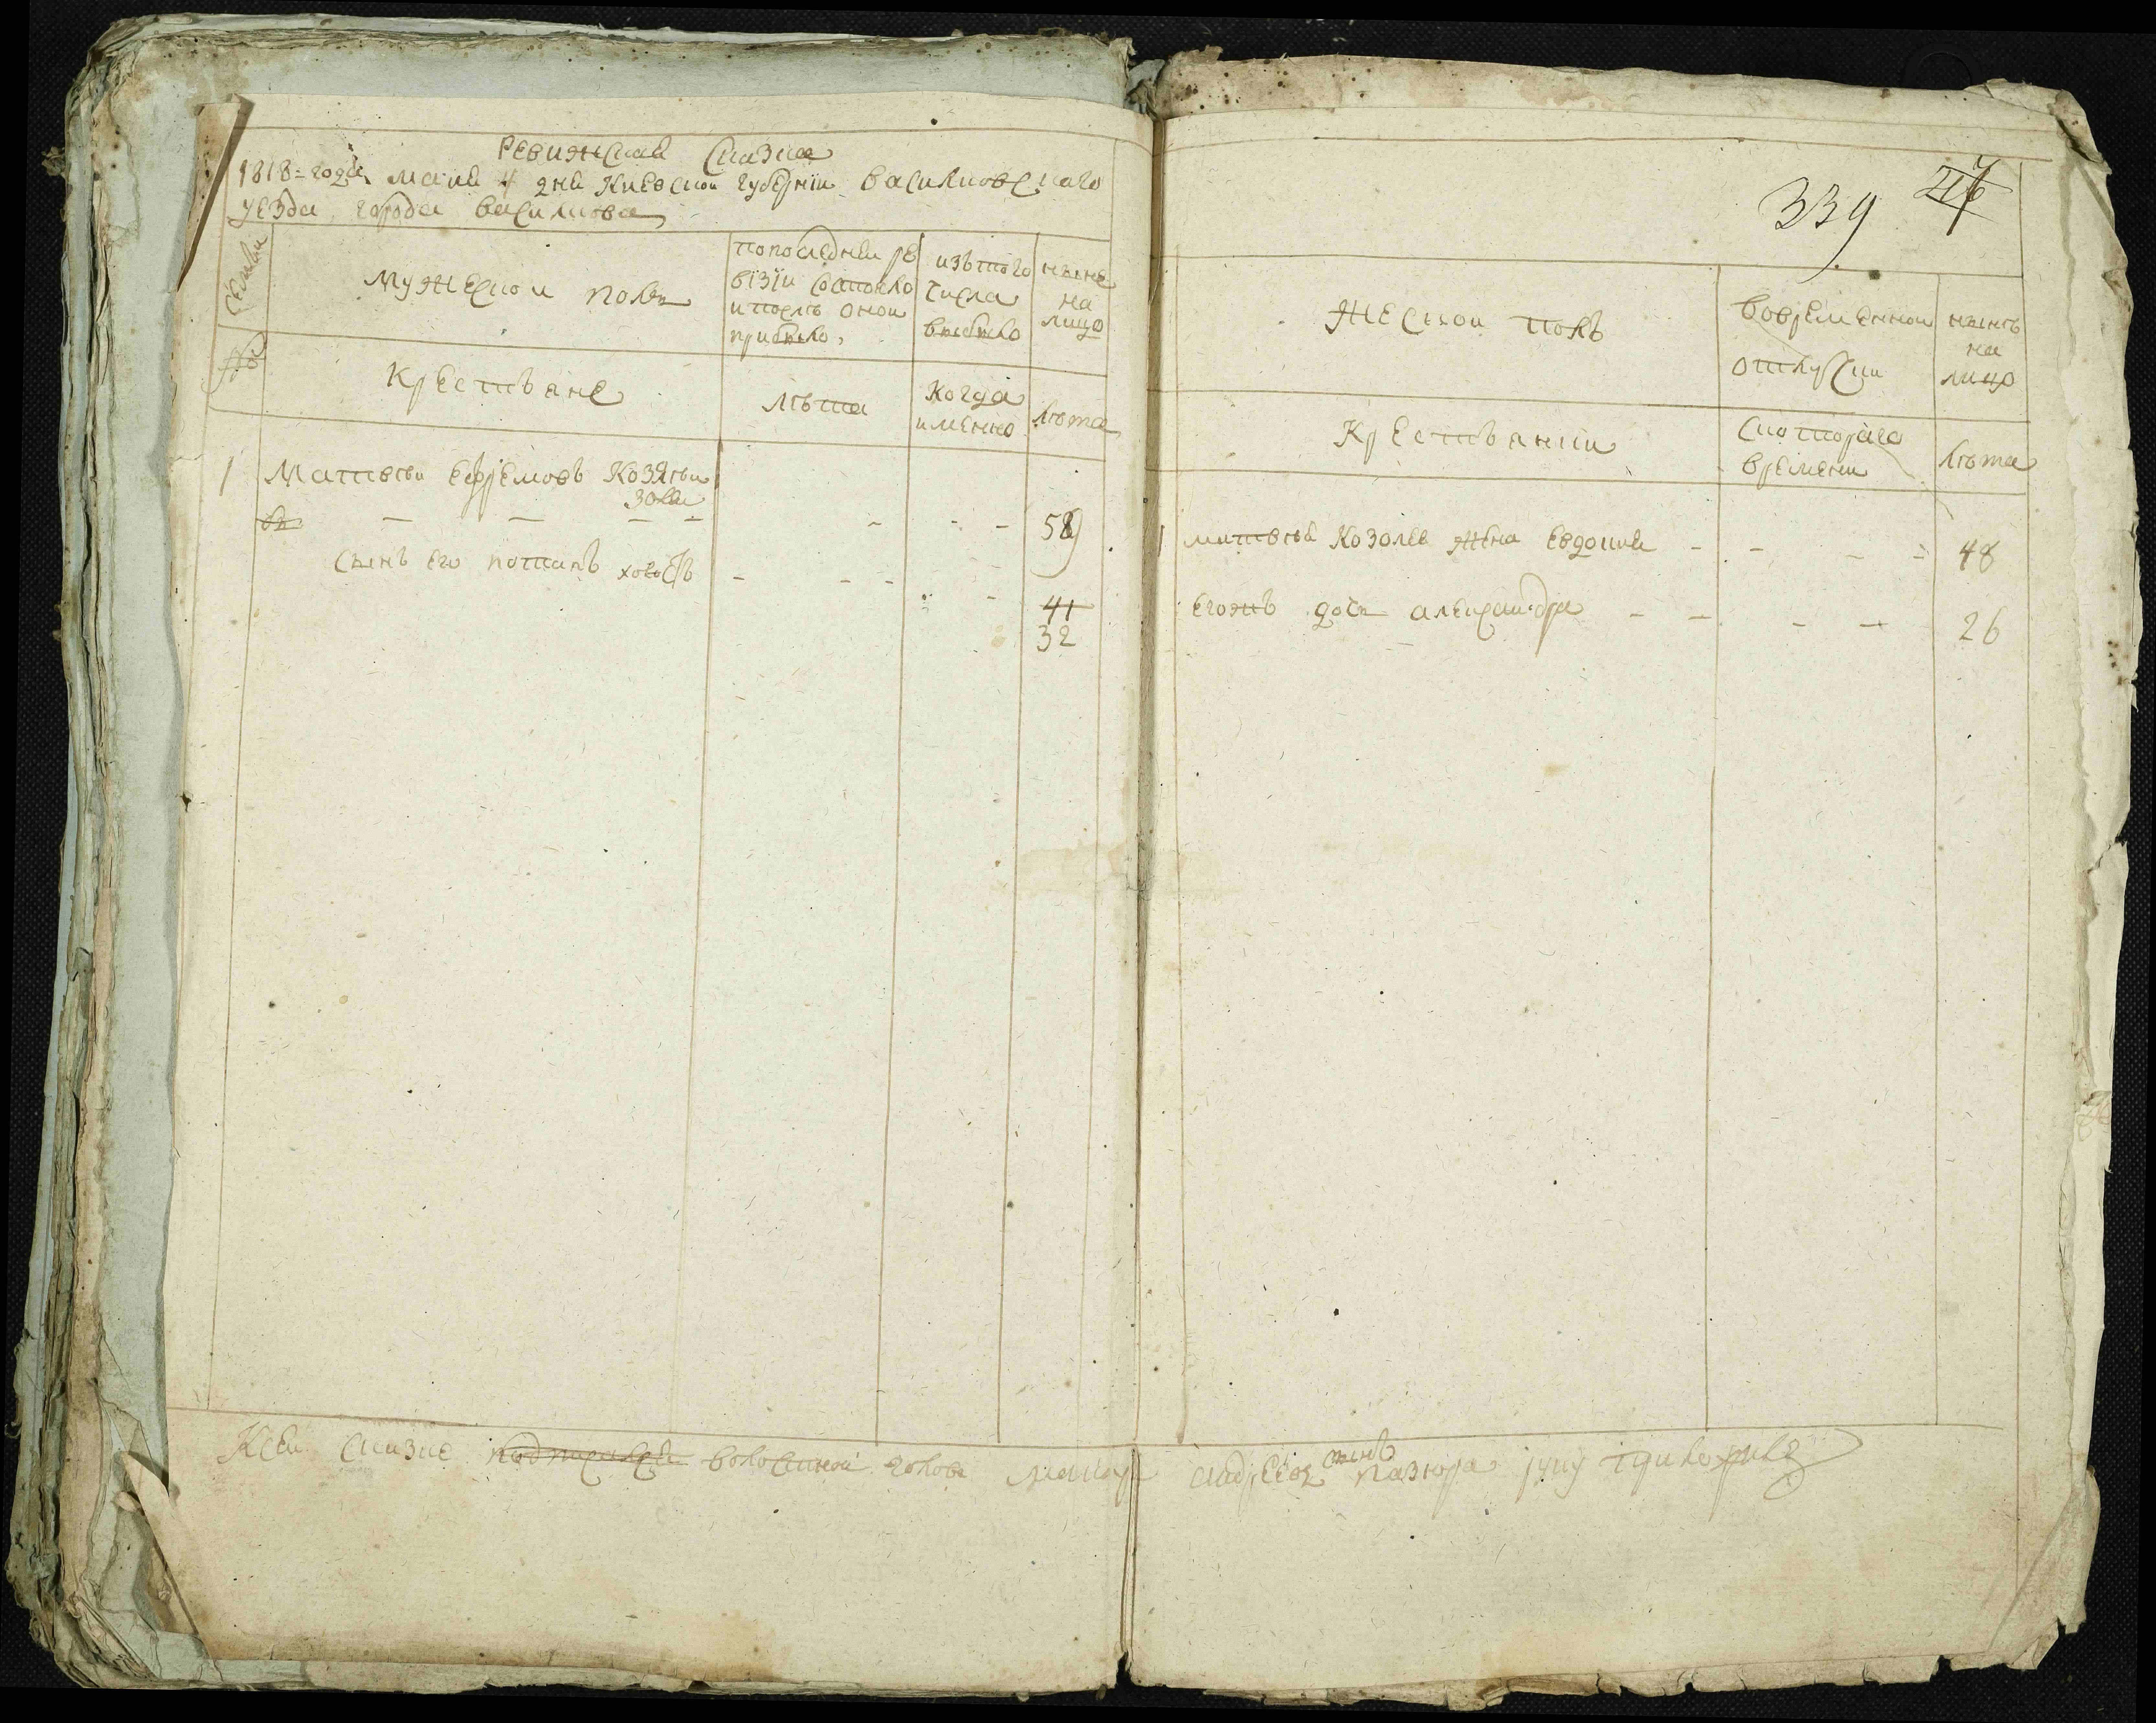 Ревижская Сказка
1818 = года маия 4 дня Киевской губернїи васильковскаго
уезда города василькова
Семьи
Мужеской полъ
попоследней ре
вїзїи состояло
ипослѣ оной
прибыло,
изътого
числа
выбыло
ныне
на
лицо
№
Крестьяне
лѣта
Когда
именно
лѣта
1 Матвѣй Ефремовъ Козѣлъ
58
сынъ его потапъ
41
32
339
Жеской полъ
вовременной
отлучки
нынѣ
на
лицо
Крестьянки
Скоторого
времени
лѣта
1 матвѣя Козоля жена Евдокия 48
Егожъ дочь александра 26
Ксей сказке волостной голова макаръ андреевъ сынъ пазюра руку приложилъ